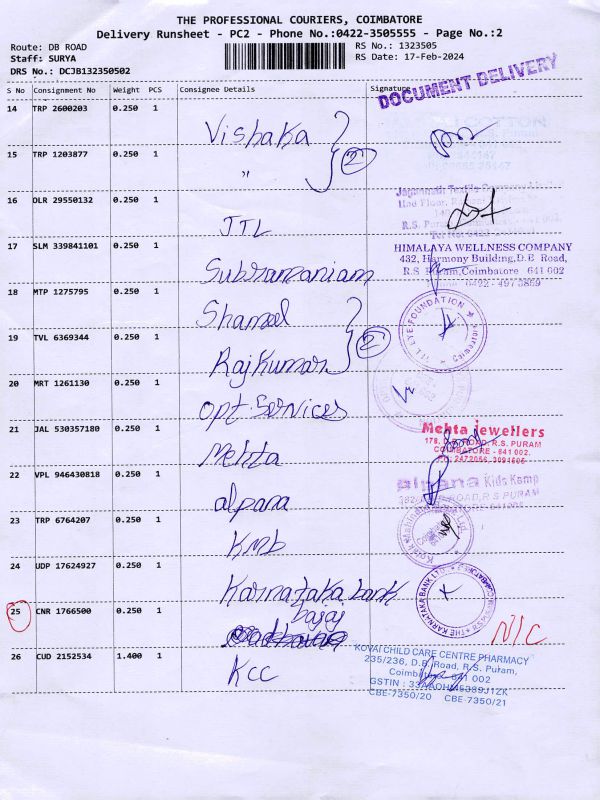 THE PROFESSIONAL COURIERS, COIMBATORE
Delivery Runsheet - PC2 - Phone No.:0422-3505555 - Page No.:2
Route: DB ROAD RS No.: 1323505
Staff: SURYA RS Date: 17-Feb-2024
DRS No.: DCJB132350502
DOCUMENT DELIVERY
S No Consignment No Weight PCS Consignee Details Signature
14 TRP 2600203 0.250 1
Vishaka
15 TRP 1203877 0.250 1
" 2
16 DLR 29550132 0.250 1
JTL
17 SLM 339841101 0.250 1
HIMALAYA WELLNESS COMPANY
432, Harmony Building, D.B. Road,
R.S Puram, Coimbatore 641 002
Subramaniam
18 MTP 1275795 0.250 1
Shameel
EYE FOUNDATION
19 TVL 6369344 0.250 1
Rajkumar 2
20 MRT 1261130 0.250 1
opt.services
21 JAL 530357180 0.250 1
Mehta jewellers
ROAD, R.S. PURAM
COIMBATORE - 641 002.
Mehta
22 VPL 946430818 0.250 1
Kids Kamp
ROAD, R.S PURAM
alpana
23 TRP 6764207 0.250 1
KMB
24 UDP 17624927 0.250 1
Karnataka bank
THE KARNATAKA BANK LTD.
25 CNR 1766500 0.250 1
bajaj
N/C
26 CUD 2152534 1.400 1
KCC
KOVAI CHILD CARE CENTRE PHARMACY
235/236, D.B. Road, R.S. Puram,
Coimbatore 641 002
CBE-7350/20 CBE-7350/21